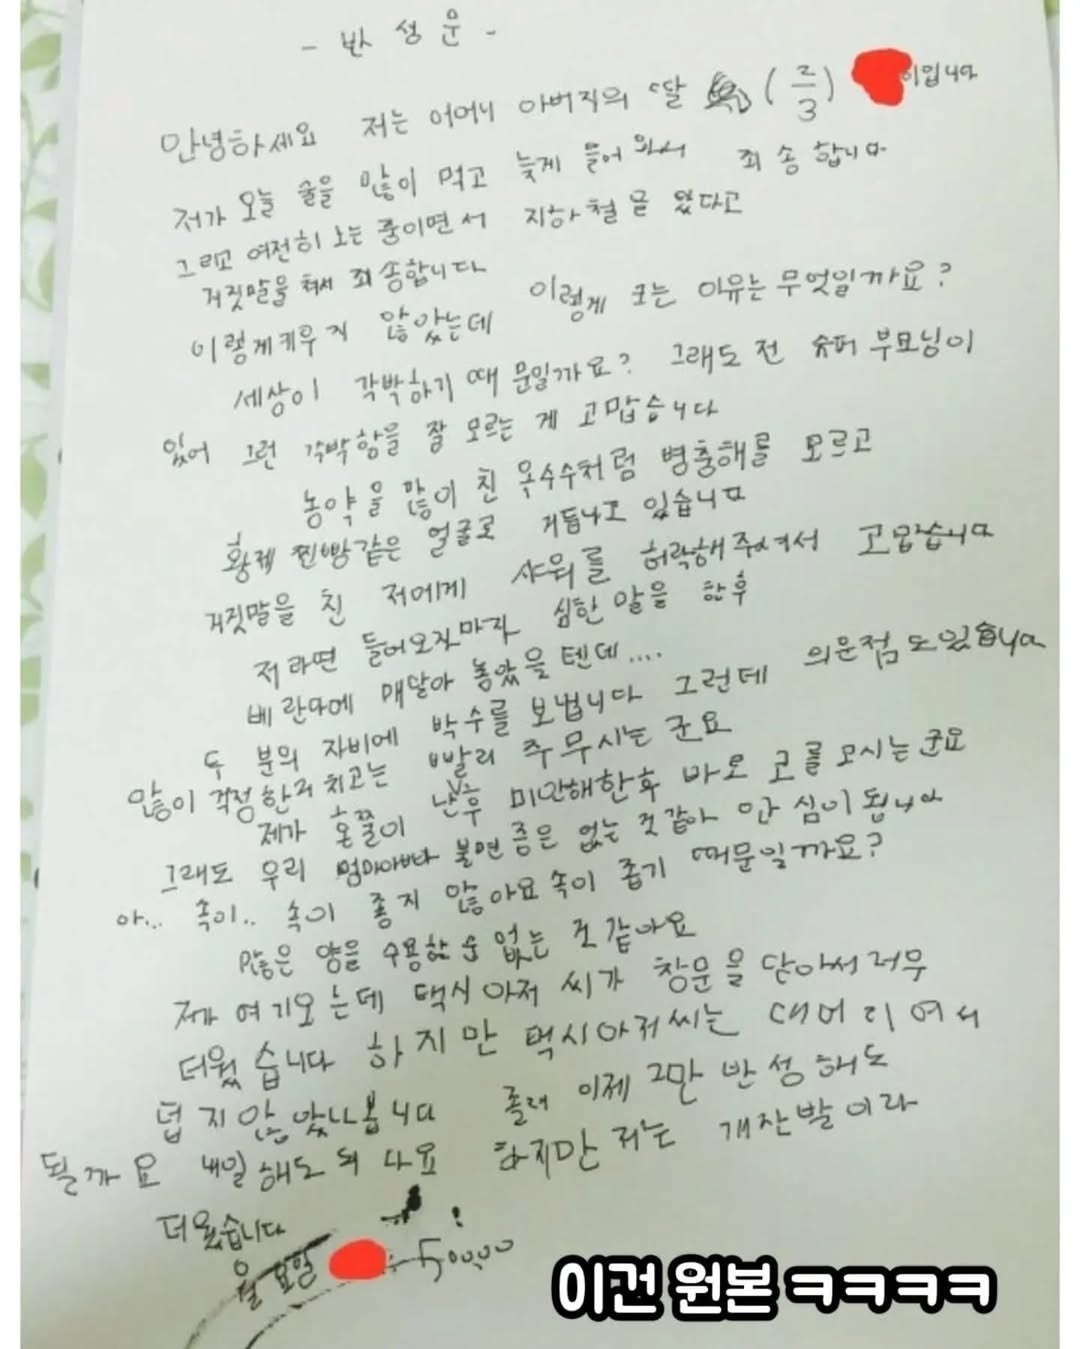 - 반성문 -
안녕하세요 저는 어머니 아버지의 딸 (2/3) 이입니다
저가 오늘 술을 많이 먹고 늦게 들어와서 죄송합니다
그리고 여전히 노는 중이면서 지하철을 탔다고
거짓말을 쳐서 죄송합니다
이렇게키우지 않았는데 이렇게 크는 이유는 무엇일까요?
세상이 각박하기 때문일까요? 그래도 전 슈퍼 부모님이
있어 그런 각박함을 잘 모르는 게 고맙습니다
농약을 많이 친 옥수수처럼 병충해를 모르고
황제 찐빵같은 얼굴로 거듭나고 있습니다
거짓말을 친 저에게 샤워를 허락해주셔서 고맙습니다
저라면 들어오자마자 심한 말을 한후
베란다에 매달아 놓았을텐데....
두 분의 자비에 박수를 보냅니다 그런데 의문점도있습니다
많이 걱정한거 치고는 빨리 주무시는군요
제가 혼쭐이 난후 미안해한후 바로 코를 고시는군요
그래도 우리 엄마아빠다 불면증은 없는 것같아 안심이됩니다
아... 속이.. 속이 좋지 않아요 속이 좁기 때문일까요?
많은 양을 수용할 순 없는 것 같아요
제가 여기오는데 택시아저씨가 창문을 닫아서 너무
더웠습니다 하지만 택시아저씨는 대머리여서
덥지않았나봅니다 졸려 이제 그만 반성해도
될까요 내일해도 되나요 하지만 저는 개잔발이라
더웠습니다
월요일 50000
이건 원본 ㅋㅋㅋㅋ